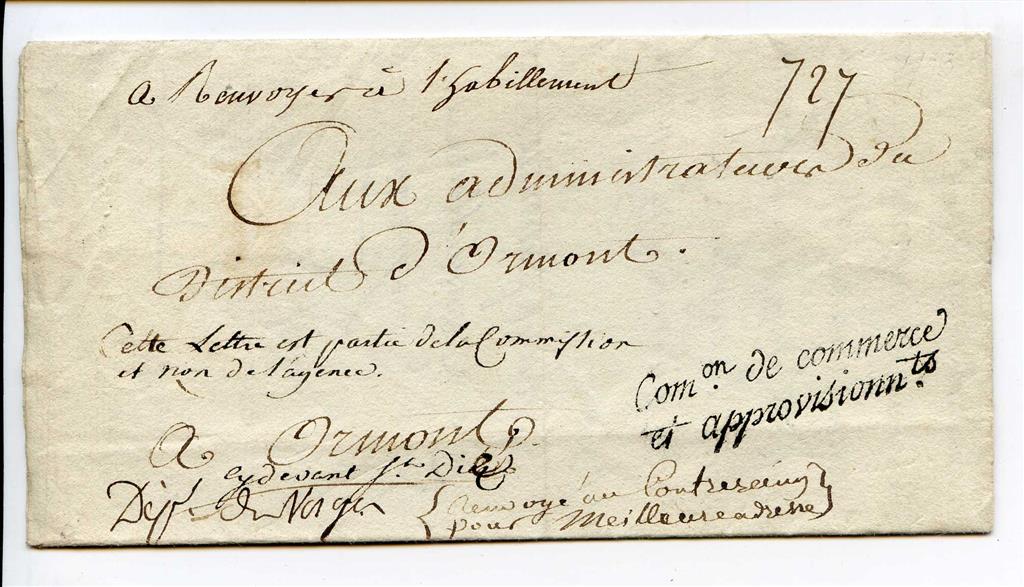 a Renvoyer à l'habillement
727
Aux administrateurs du
District d'Ormont.
Cette Lettre est partie de la Commission
et non de l'agence.
Com.on de commerce
et approvisionn.ts
a Ormont
cydevant St. Dié
Dépt. des Vosges
{Renvoyé au Contreseing
pour Meilleure adresse}